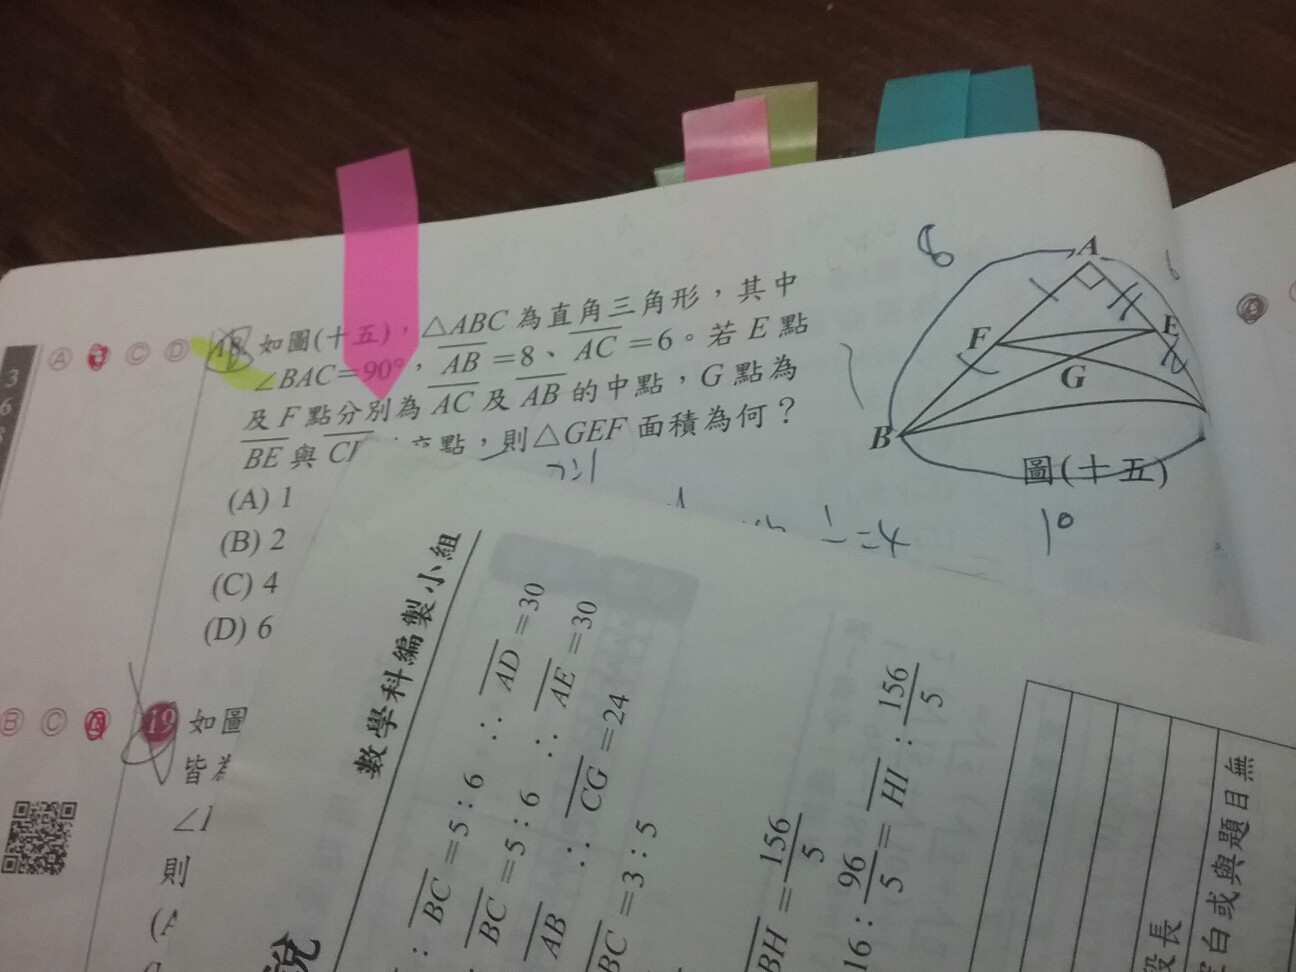 18. 如圖(十五)，△ABC 為直角三角形，其中
∠BAC=90°，AB=8、AC=6。若 E 點
及 F 點分別為 AC 及 AB 的中點，G 點為
BE 與 交點，則△GEF 面積為何？
(A) 1
(B) 2
(C) 4
(D) 6
A
F
E
G
B
圖(十五)
8
10
A C D
3
6
B C
19 如圖
皆
則
(A
數學科編製小組
BC=5:6 ∴ AD=30
BC=5:6 ∴ AE=30
AB ∴ CG=24
BC=3:5
BH=156/5
16:96/5=HI:156/5
說
段長
白或與題目無